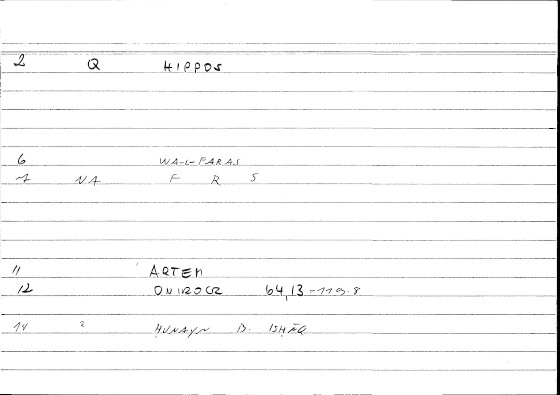 2 Q HIPPOS
6 WA-L-FARAS
7 NA F R S
11 ARTEM
12 ONIROCR 64,13-119.8
14 2 ḤUNAYN B. ISḤĀQ